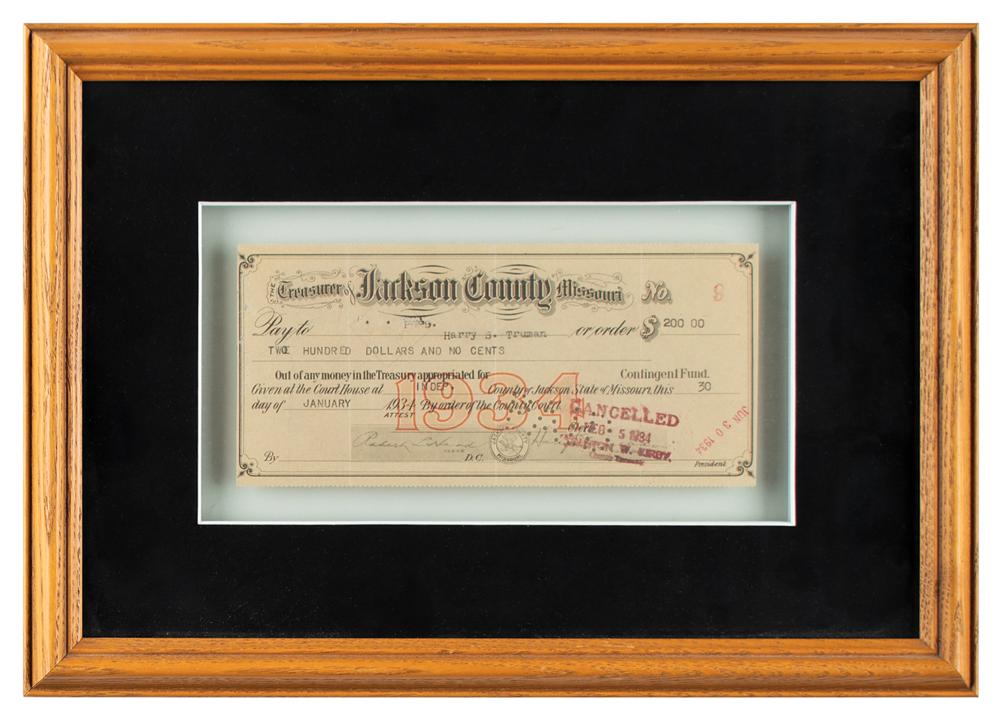 THE Treasurer of Jackson County Missouri No. 9
Pay to Harry S. Truman or order $ 200 00
TWO HUNDRED DOLLARS AND NO CENTS
Out of any money in the Treasury appropriated for Contingent Fund.
Given at the Court House at INDEP. County of Jackson State of Missouri, this 30
day of JANUARY 1934 By order of the County Court.
1934
ATTEST
CANCELLED
FEB 5 1934
W. KIRBY,
County Treasurer
JUN 30 1934
CLERK
By D.C. President